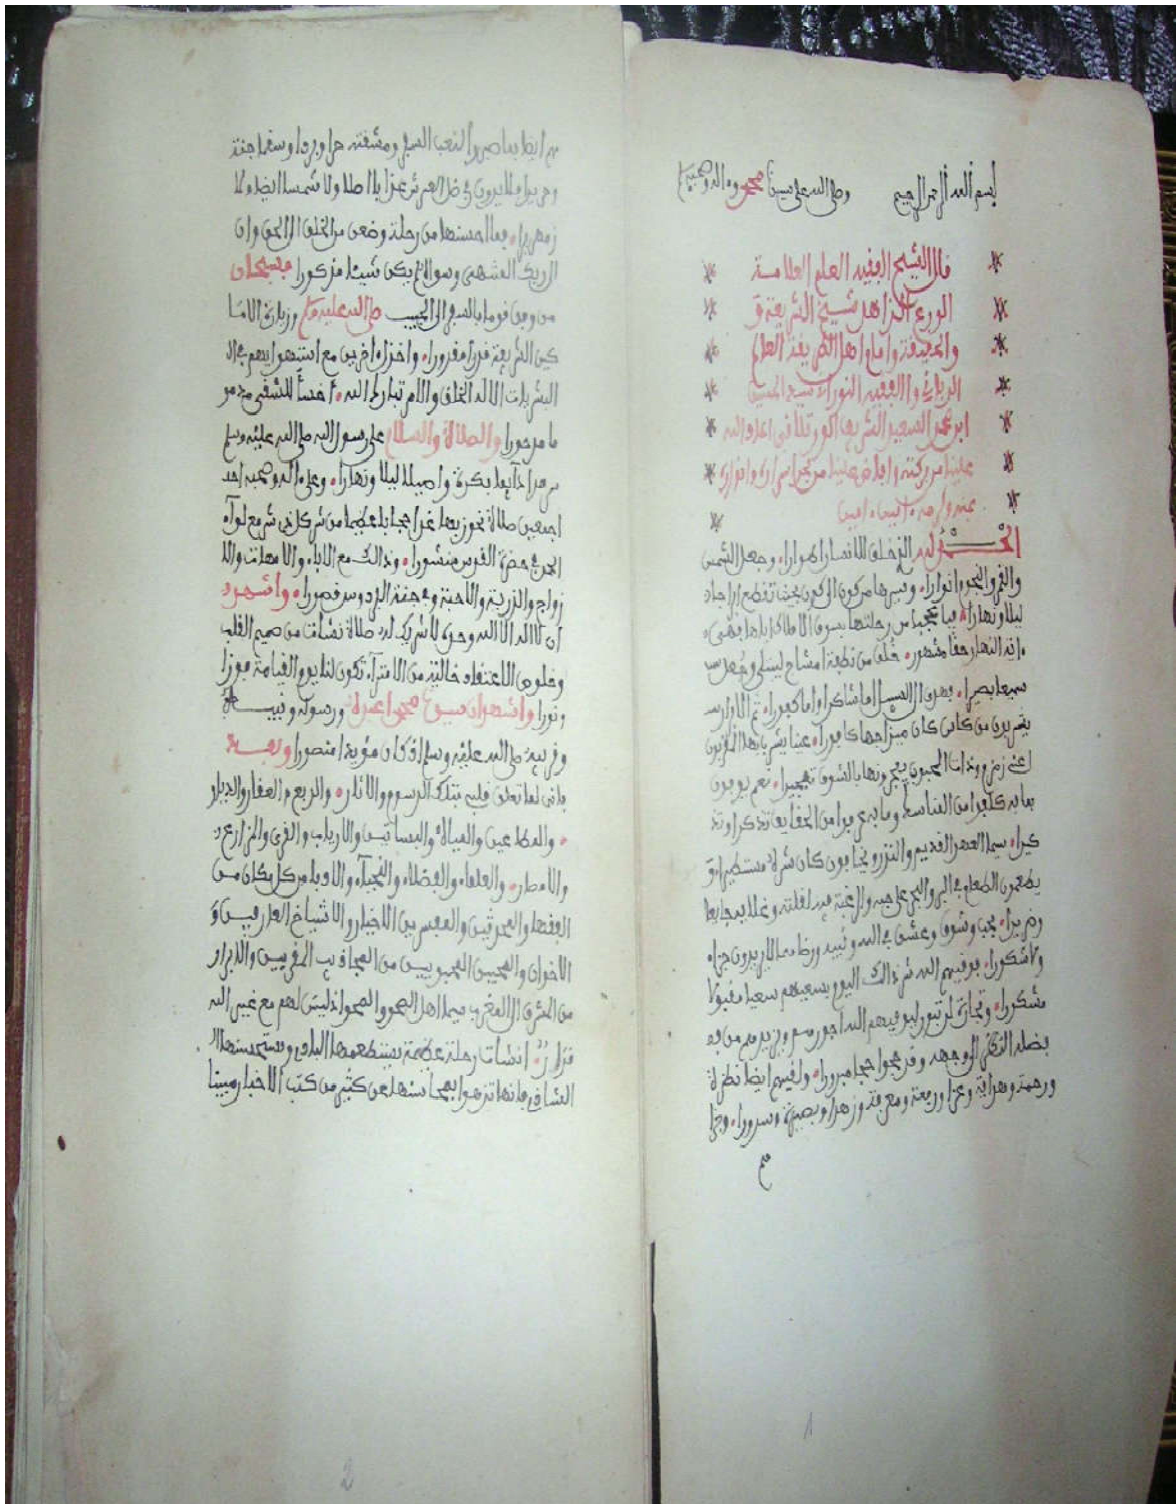 بسم الله الرحمن الرحيم وصلى الله على سيدنا محمد وءاله وصحبه
قال الشيخ الفقيه العالم العلامة
الورع الزاهد شيخ الشريعة و
والحقيقة وإمام أهل الطريقة العالم
الرباني والفقيه النوراني سيد الحسين
ابن محمد السعيد الشريف الورتلاني أعاد الله
علينا من بركته وأفاض علينا من بحر أسراره وأنواره
بمنه وكرمه ءامين ءامين
الحمد لله الذي خلق الإنسان أطوارا، وجعل الشمس
والقمر والنجوم أنوارا، وسيرها من كون إلى كون بحيث تقطع أبراجا
ليلا ونهارا، فيا عجبا من رحلتها بسوق الأملاك إياها فهي
ءاية النهار حقا مشهور، خلق من نطفة أمشاج ليبتلى وجعل
سميعا بصيرا، فهدي إلى السبيل إما شاكرا وإما كفورا، ثم الأبرار
يشربون من كأس كان مزاجها كافورا، عينا يشرب بها المقربون
أعني زمزم وذات المحبون يفجرونها بالشوق تفجيرا، نعم يوفون
بما به كلفوا من المناسك وما به عرفوا من الحقائق تذكرا وتذ
كيرا، سيما العهد القديم والنذر ويخافون كان شره مستطيرا، و
يطعمون الطعام في البر والبحر على حبه والرغبة فيه لقلته وغلائه
وضريرا، بحب وشوق وعشق في الله ونبيه ورضاه لا يريدون جزاء
ولا شكورا، فوقيهم الله شر ذلك اليوم بسعيهم سعيا مقبولا
مشكورا، وتجارة لن تبور ليوفيهم الله أجورهم ويزيدهم من فضله
بضله النظر إلى وجهه وقد حجوا حجا مبرورا، ولقيهم أيضا نضرة
ورحمة وهداية وعزا ورفعة ومعرفة وزهدا وبصيرة وسرورا، وجزا
هم
هم أيضا بما صبروا لتعب السفر ومشقته حرا وبردا وسفرا جنة
وحريرا، لا يرون في ظل العرش عذابا أصلا ولا شمسا أيضا ولا
زمهريرا، فما أحسنها من رحلة وضعن من الخلق إلى الحق وأن
إلى ربك المنتهى وسواه لم يكن شيئا مذكورا، فسبحان
من وفق قوما بالسفر إلى الحبيب صلى الله عليه وسلم وزيارة الأما
كن الشريفة قدرا مقدورا، وأخزاه ءاخرين مع اشتهوائهم في
البشريات ألا له الخلق والأمر تبارك الله،
ما مدحورا، والصلاة والسلام على رسول الله صلى الله عليه وسلم
سرمدا دائما بكرة وأصيلا ليلا ونهارا، وعلى ءاله وصحبه
أجمعين صلاة نحوز بها عزا عظيما من شر كل ذي شر مع لواء
الحمد في حضرة القدس منشورا، وذلك مع الآباء والأمهات والا
زواج والذرية والأحبة وفي جنة الفردوس قصورا، وأشهد
أن لا إله إلا الله وحده لا شريك له صلاة نشأت من صميم القلب
وخلوص الاعتقاد خالية من الافتراء تكون لنا يوم القيامة فوزا
ونورا، وأشهد أن سيدنا محمدا عبده ورسوله ونبيه
صلى الله عليه وسلم إذ كان مؤيدا منصورا، وبعد
فإني لما تعلق قلبي بتلك الرسوم والآثار، والربع والقفار والديار
، والعيون والمياه والبساتين والأرياف والقرى والمزارع
والأمصار، والعلماء والفضلاء والنجباء والأدباء من كل مكان من
الفقهاء والمحدثين والمفسرين الأخيار والأشياخ العارفين و
الإخوان والمحبين المحبوبين من المجاذيب المقربين والأبرار
من المشرق إلى المغرب سيما أهل الصحو والمحو إذ ليس لهم مع غير الله
قرار، أنشأت رحلة عظيمة يستعظمها البادي ويستحسنها
الشادي فإنها تزهو بمحاسنها عن كثير من كتب الأخبار مبينا
1
2